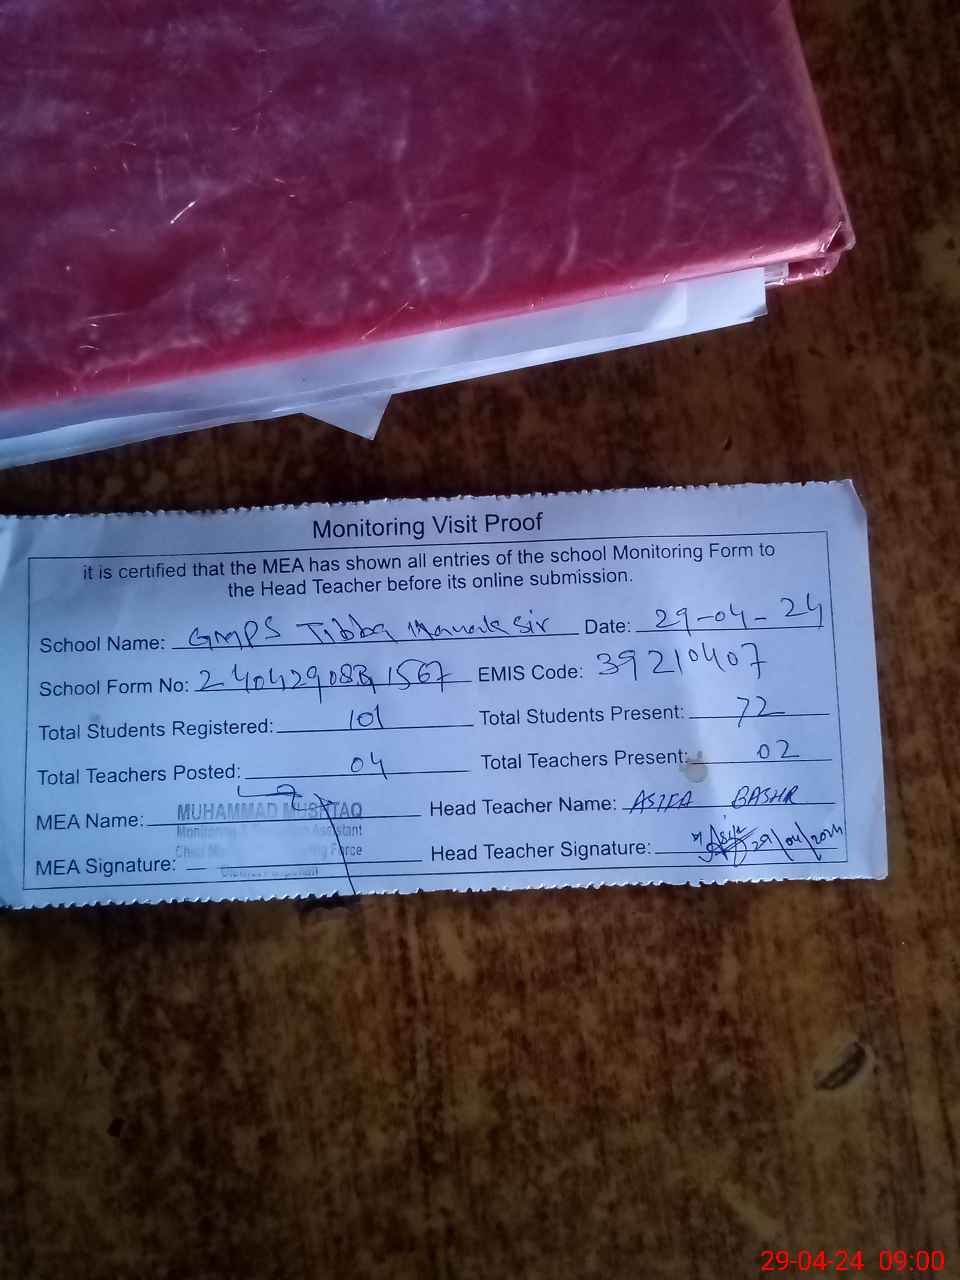 Monitoring Visit Proof
it is certified that the MEA has shown all entries of the school Monitoring Form to
the Head Teacher before its online submission.
School Name: GMPS Tibba Date: 29-04-24
School Form No: EMIS Code: 39210407
Total Students Registered: 101 Total Students Present: 72
Total Teachers Posted: 04 Total Teachers Present: 02
MEA Name: MUHAMMAD MUSHTAQ Head Teacher Name: ASIFA BASHIR
Monitoring Assistant
Force
MEA Signature: Head Teacher Signature: 29/04/2024
29-04-24 09:00